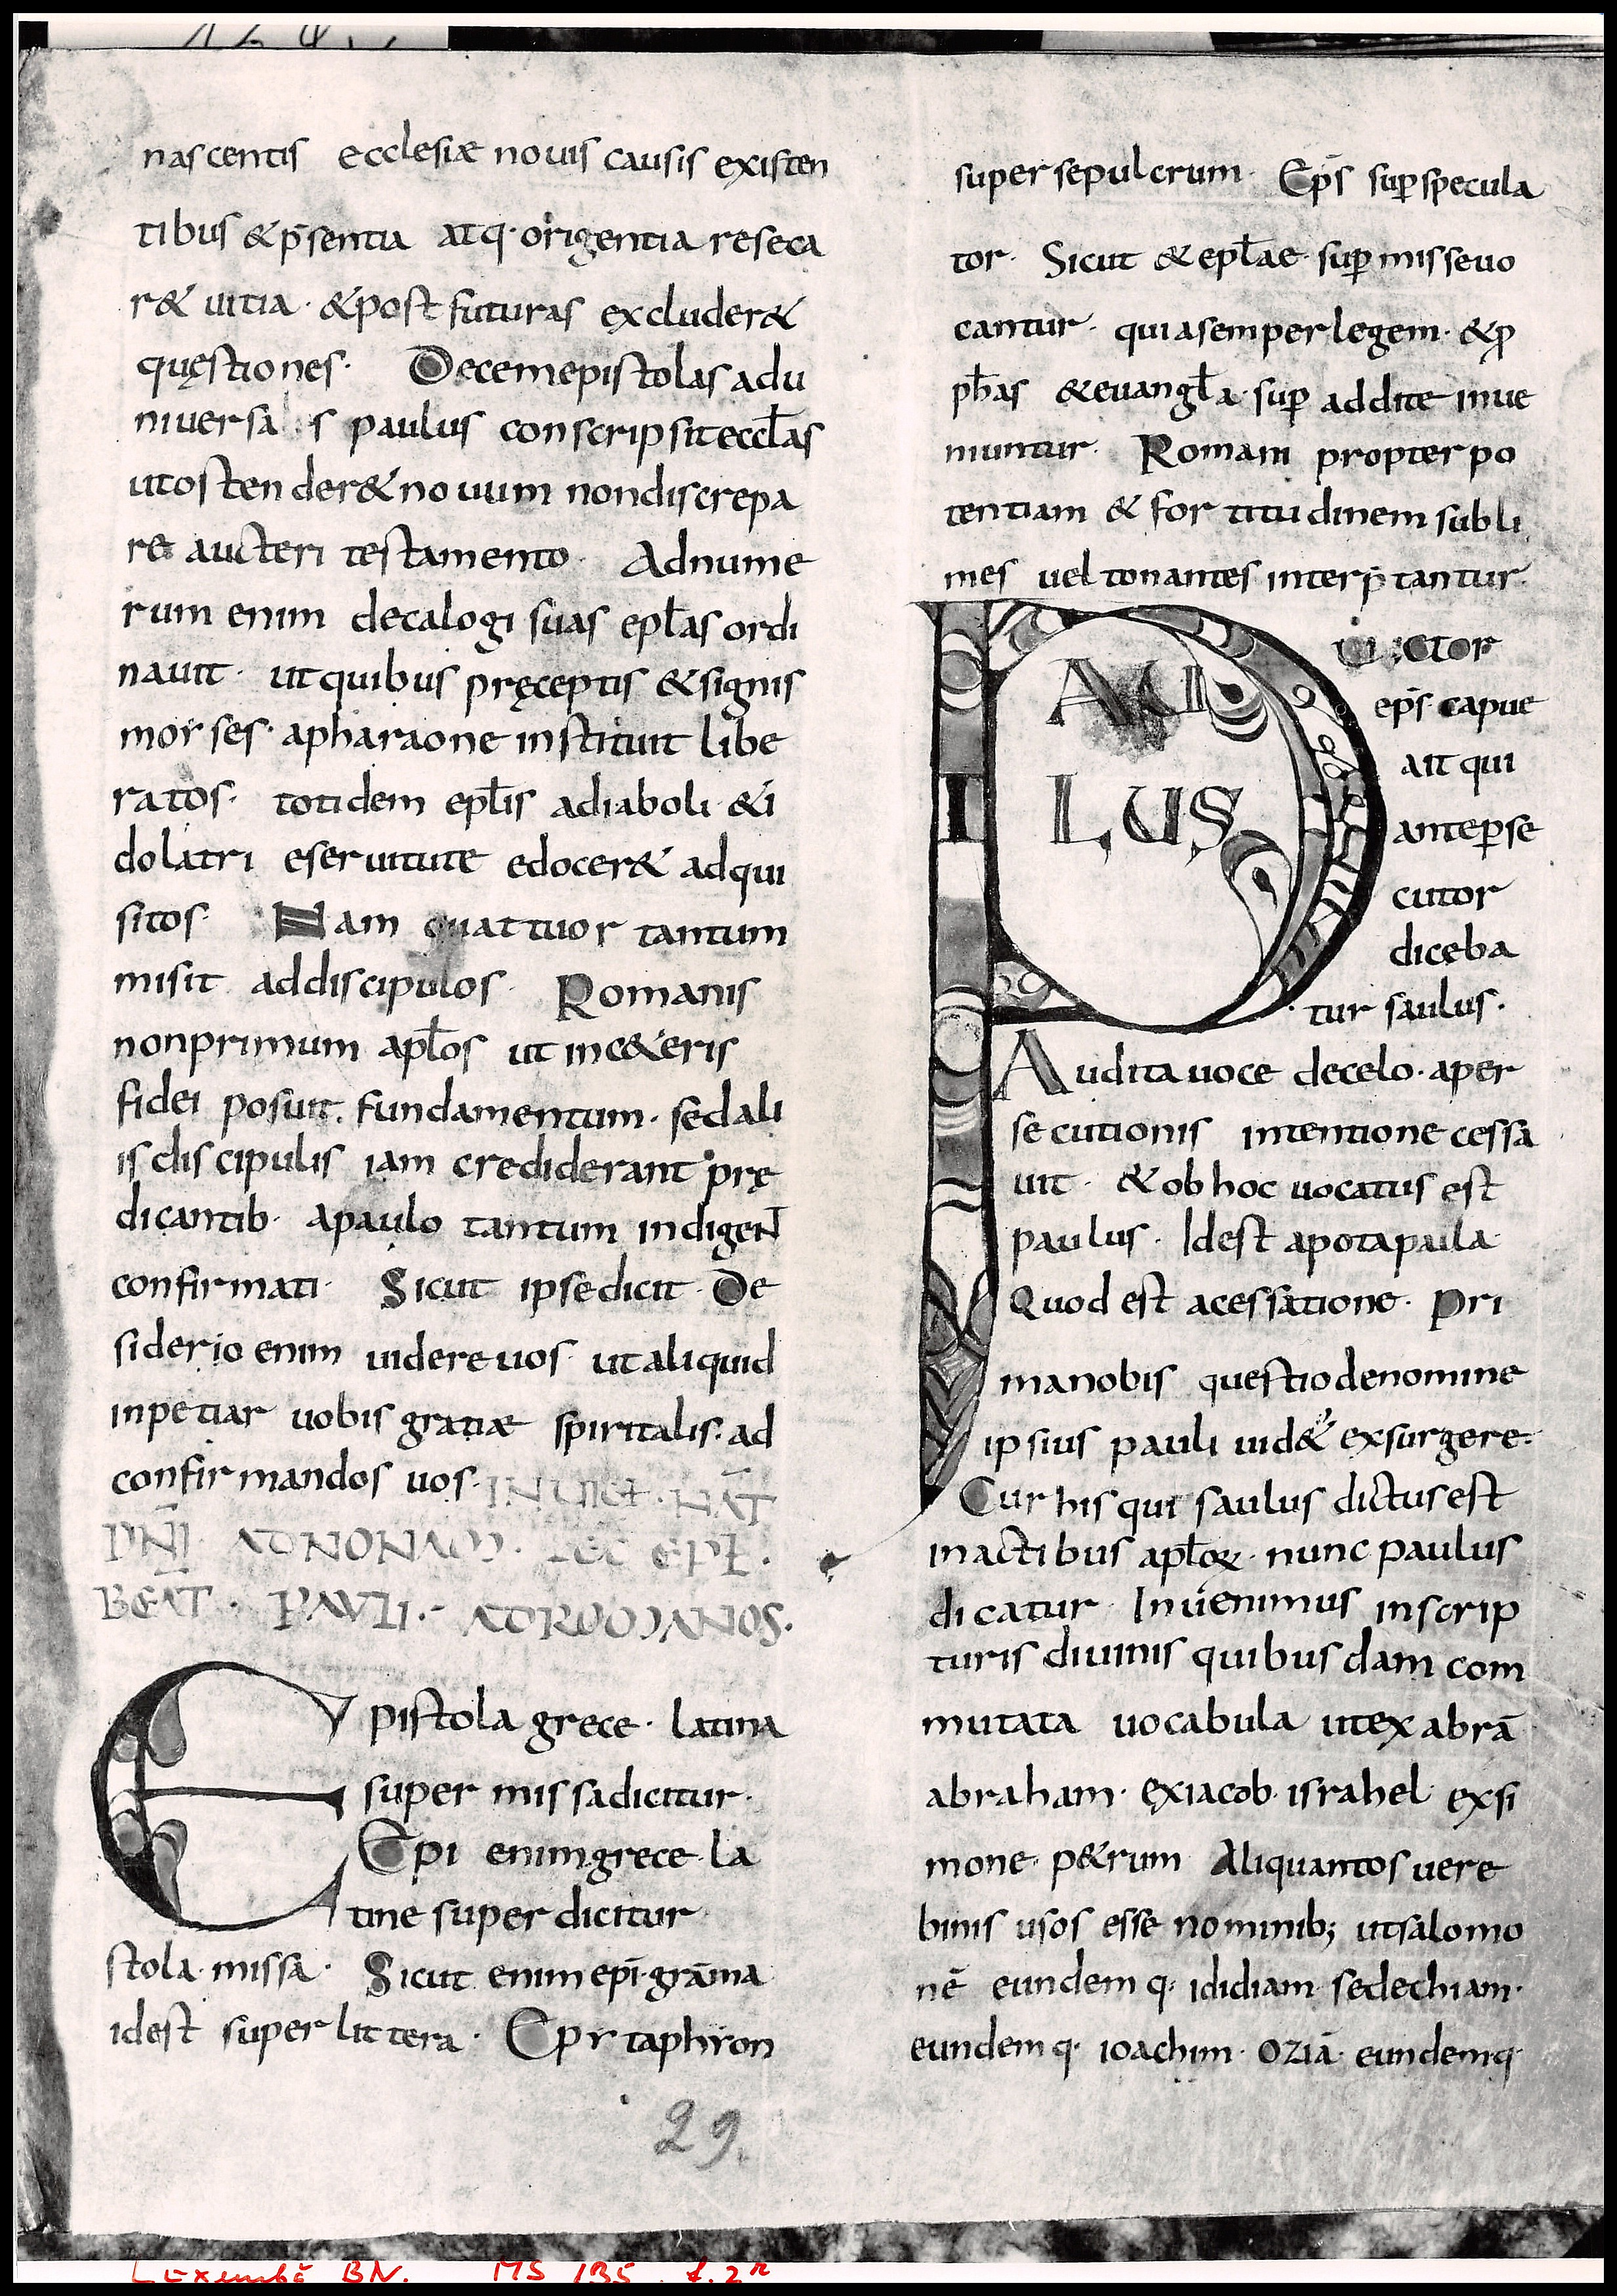 nascentis ecclesiæ nouis causis existen
tibus & p̄sentia atq· origentia reseca
r& uitia · & post futuras excluder&
quęstiones · Decem epistolas adu
niuersa s paulus conscripsit eccl̄as
ut ostender& nouum non discrepa
re aucteri testamento · Ad nume
rum enim decalogi suas epl̄as ordi
nauit · ut quibus pręceptis & signis
morses · a pharaone instituit libe
ratos · totidem epl̄is a diaboli · & i
dolatri eseruitute edocer& adqui
sitos · Nam quattuor tantum
misit ad discipulos · Romanis
non primum apl̄os ut in c&eris
fidei posuit · fundamentum · sed ali
is discipulis iam crediderant prę
dicantib · a paulo tantum indigeN̄
confirmati · Sicut ipse dicit · De
siderio enim uidere uos · ut aliquid
inpetiar uobis gratiæ spiritalis · ad
confirmandos uos ·
BEAT · PAULI · ADROMANOS ·
Epistola grece · latina
super missa dicitur ·
Epi enim grece · la
tine super dicitur ·
stola · missa · Sicut enim epi · grāma
idest super littera · Epr taphion
super sepulcrum · Ep̄s sup specula
tor · Sicut & epl̄ae · sup misse uo
cantur · quia semper legem · & p
ph̄as & euangl̄a · sup addite inue
niuntur · Romani propter po
tentiam & fortitudinem subli
mes uel tonantes interp̄tantur ·
PAULUS
uictor
ep̄s capue
ait qui
ante pse
cutor
diceba
tur saulus ·
Audita uoce de celo · a per
secutionis intentione cessa
uit · & ob hoc uocatus est
paulus · Idest apotapaula ·
Quod est a cessatione · Pri
ma nobis questio de nomine
ipsius pauli uid& exsurgere ·
Cur his qui saulus dictus est
in actibus apl̄oꝝ · nunc paulus
dicatur · Inuenimus in scrip
turis diuinis quibusdam com
mutata uocabula ut ex abrā
abraham · ex iacob · israhel · ex si
mone · p&rum Aliquantos uere
binis usos esse nominib; ut salomo
nē eundem q· ididiam · sedechiam ·
eundem q· ioachim · oziā · eundemq·
29.
Luxembg BN. MS 135 f. 2r